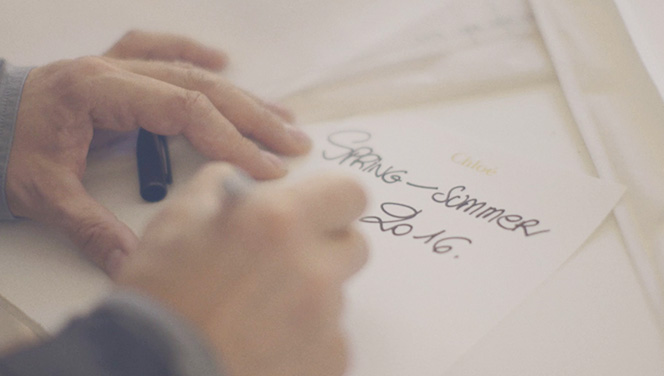 Chloé
SPRING-SUMMER
2016.